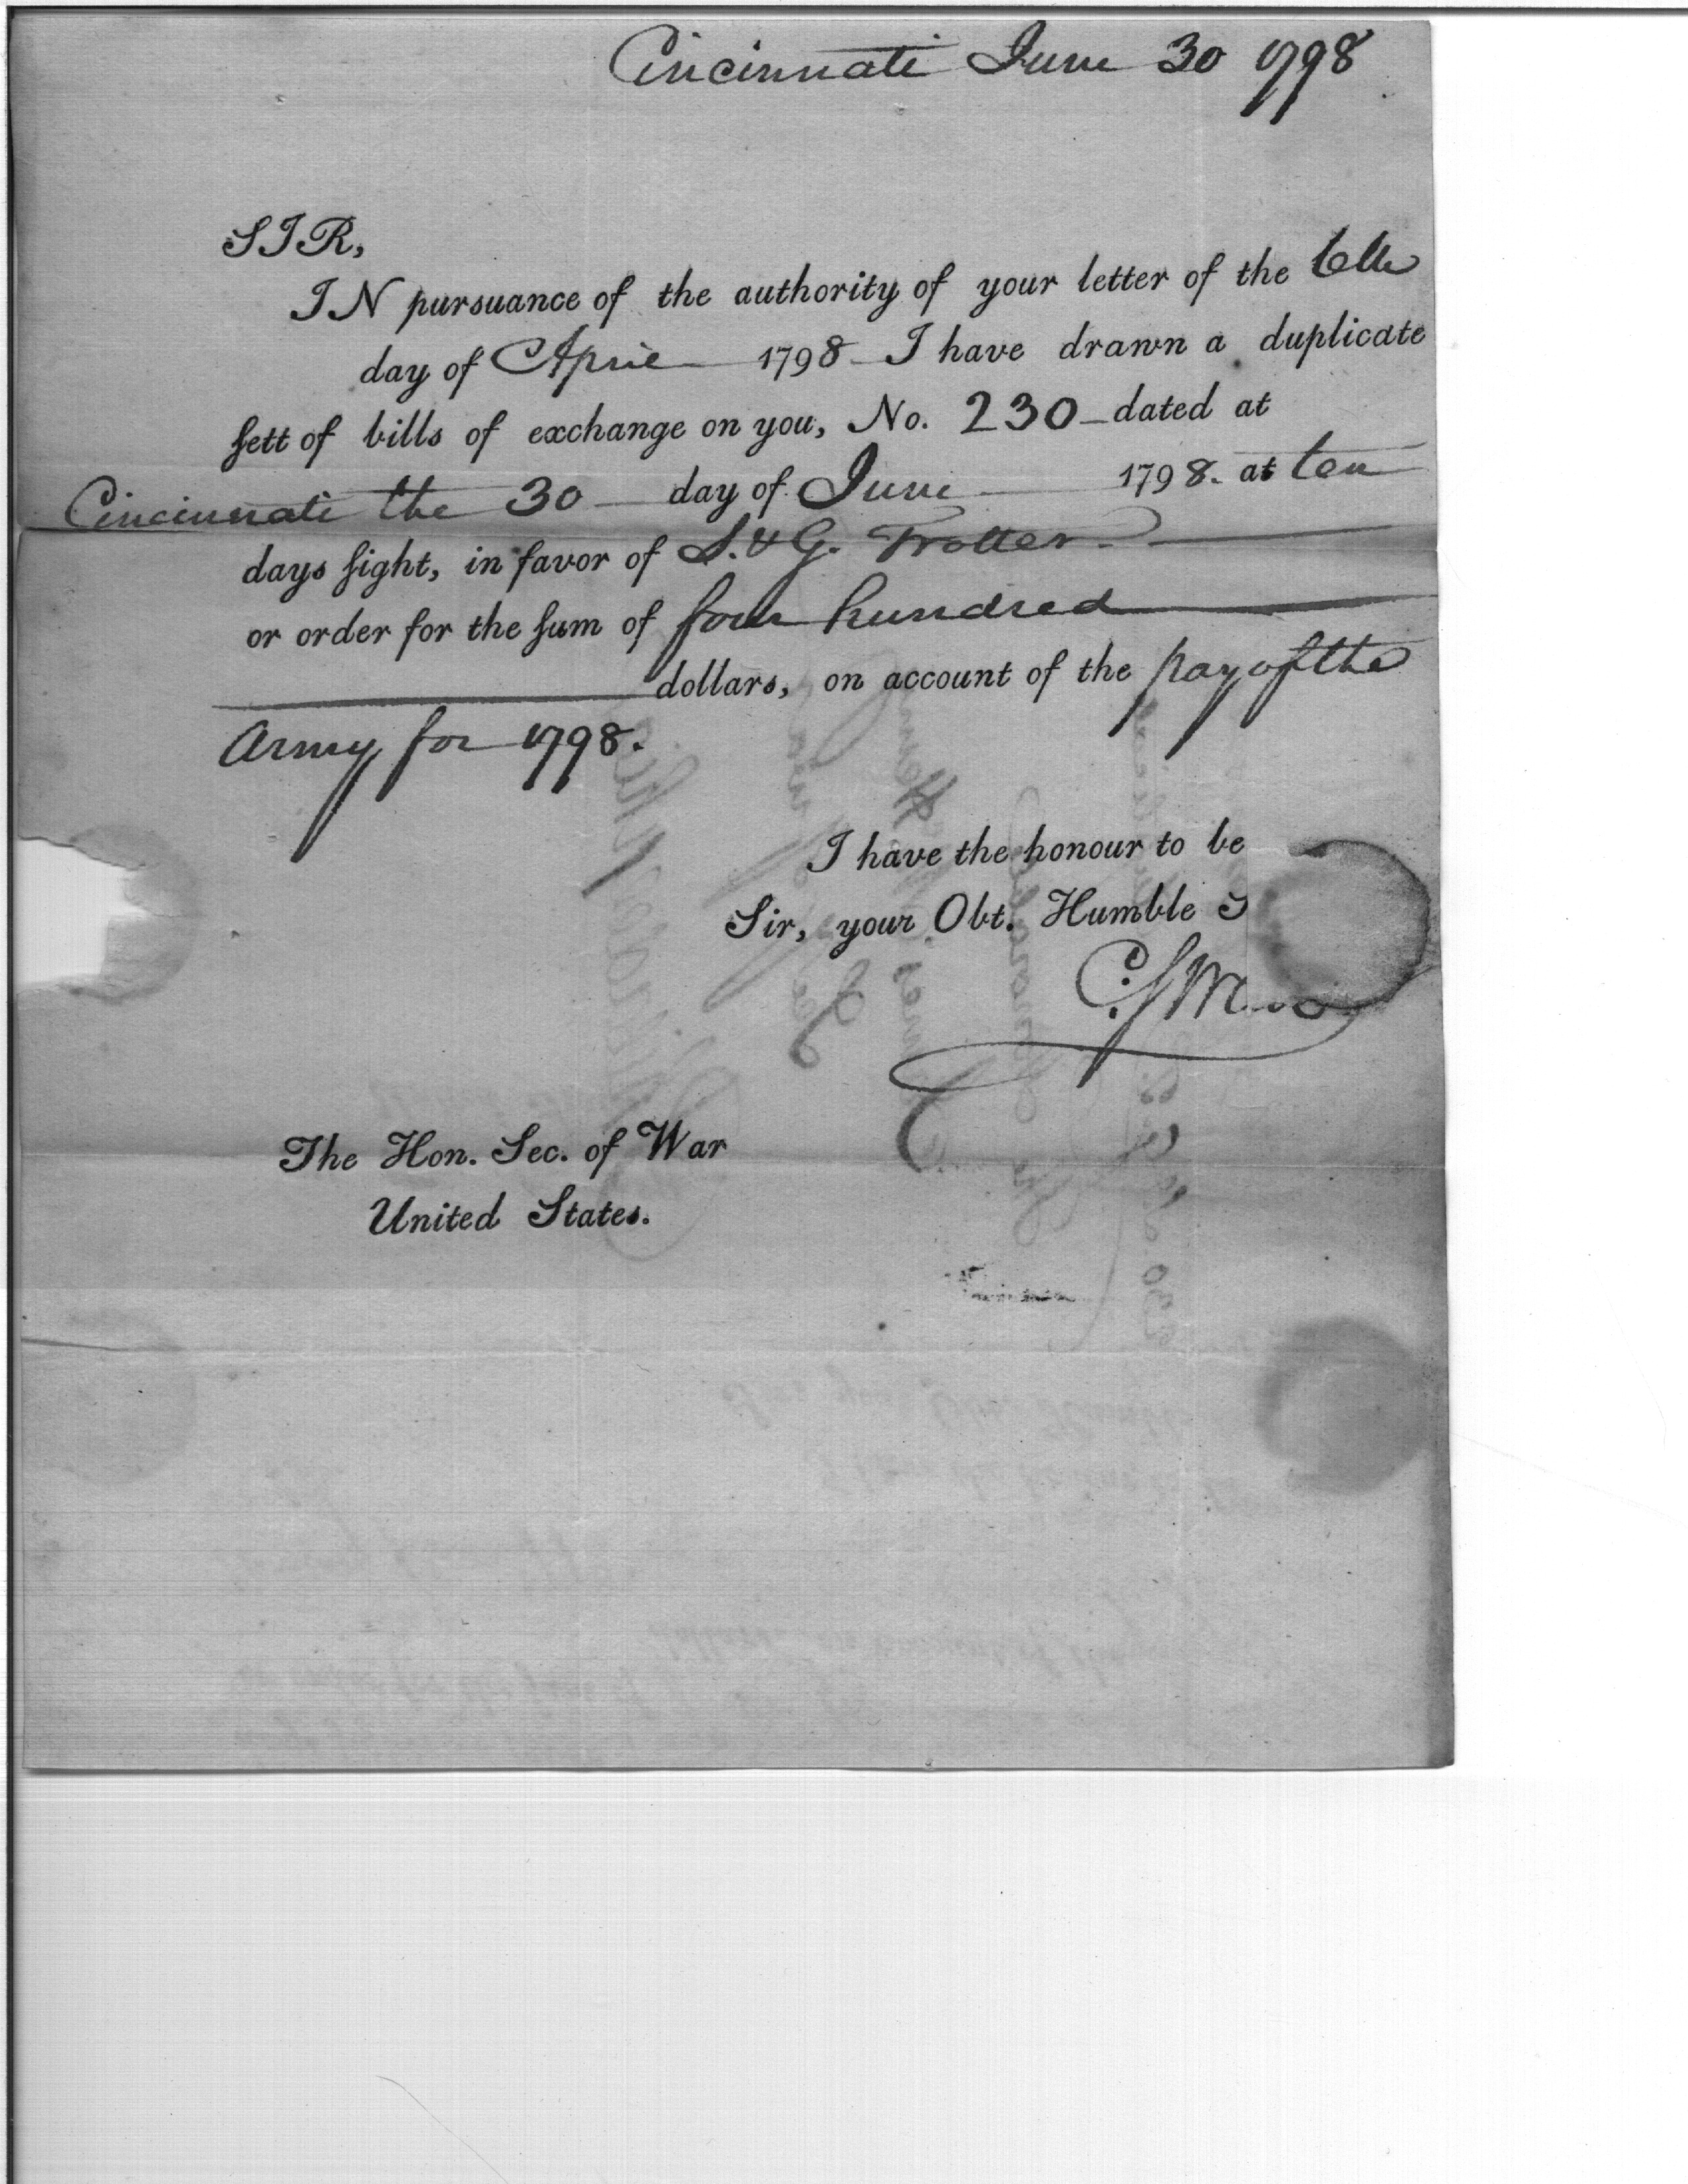 Cincinnati June 30 1798
SIR,
IN pursuance of the authority of your letter of the 6th
day of April 1798 I have drawn a duplicate
sett of bills of exchange on you, No. 230 dated at
Cincinnati the 30 day of June 1798. at ten
days sight, in favor of S. & G. Trotter
or order for the sum of four hundred
dollars, on account of the pay of the
Army for 1798.
I have the honour to be
Sir, your Obt. Humble S
C. S
The Hon. Sec. of War
United States.